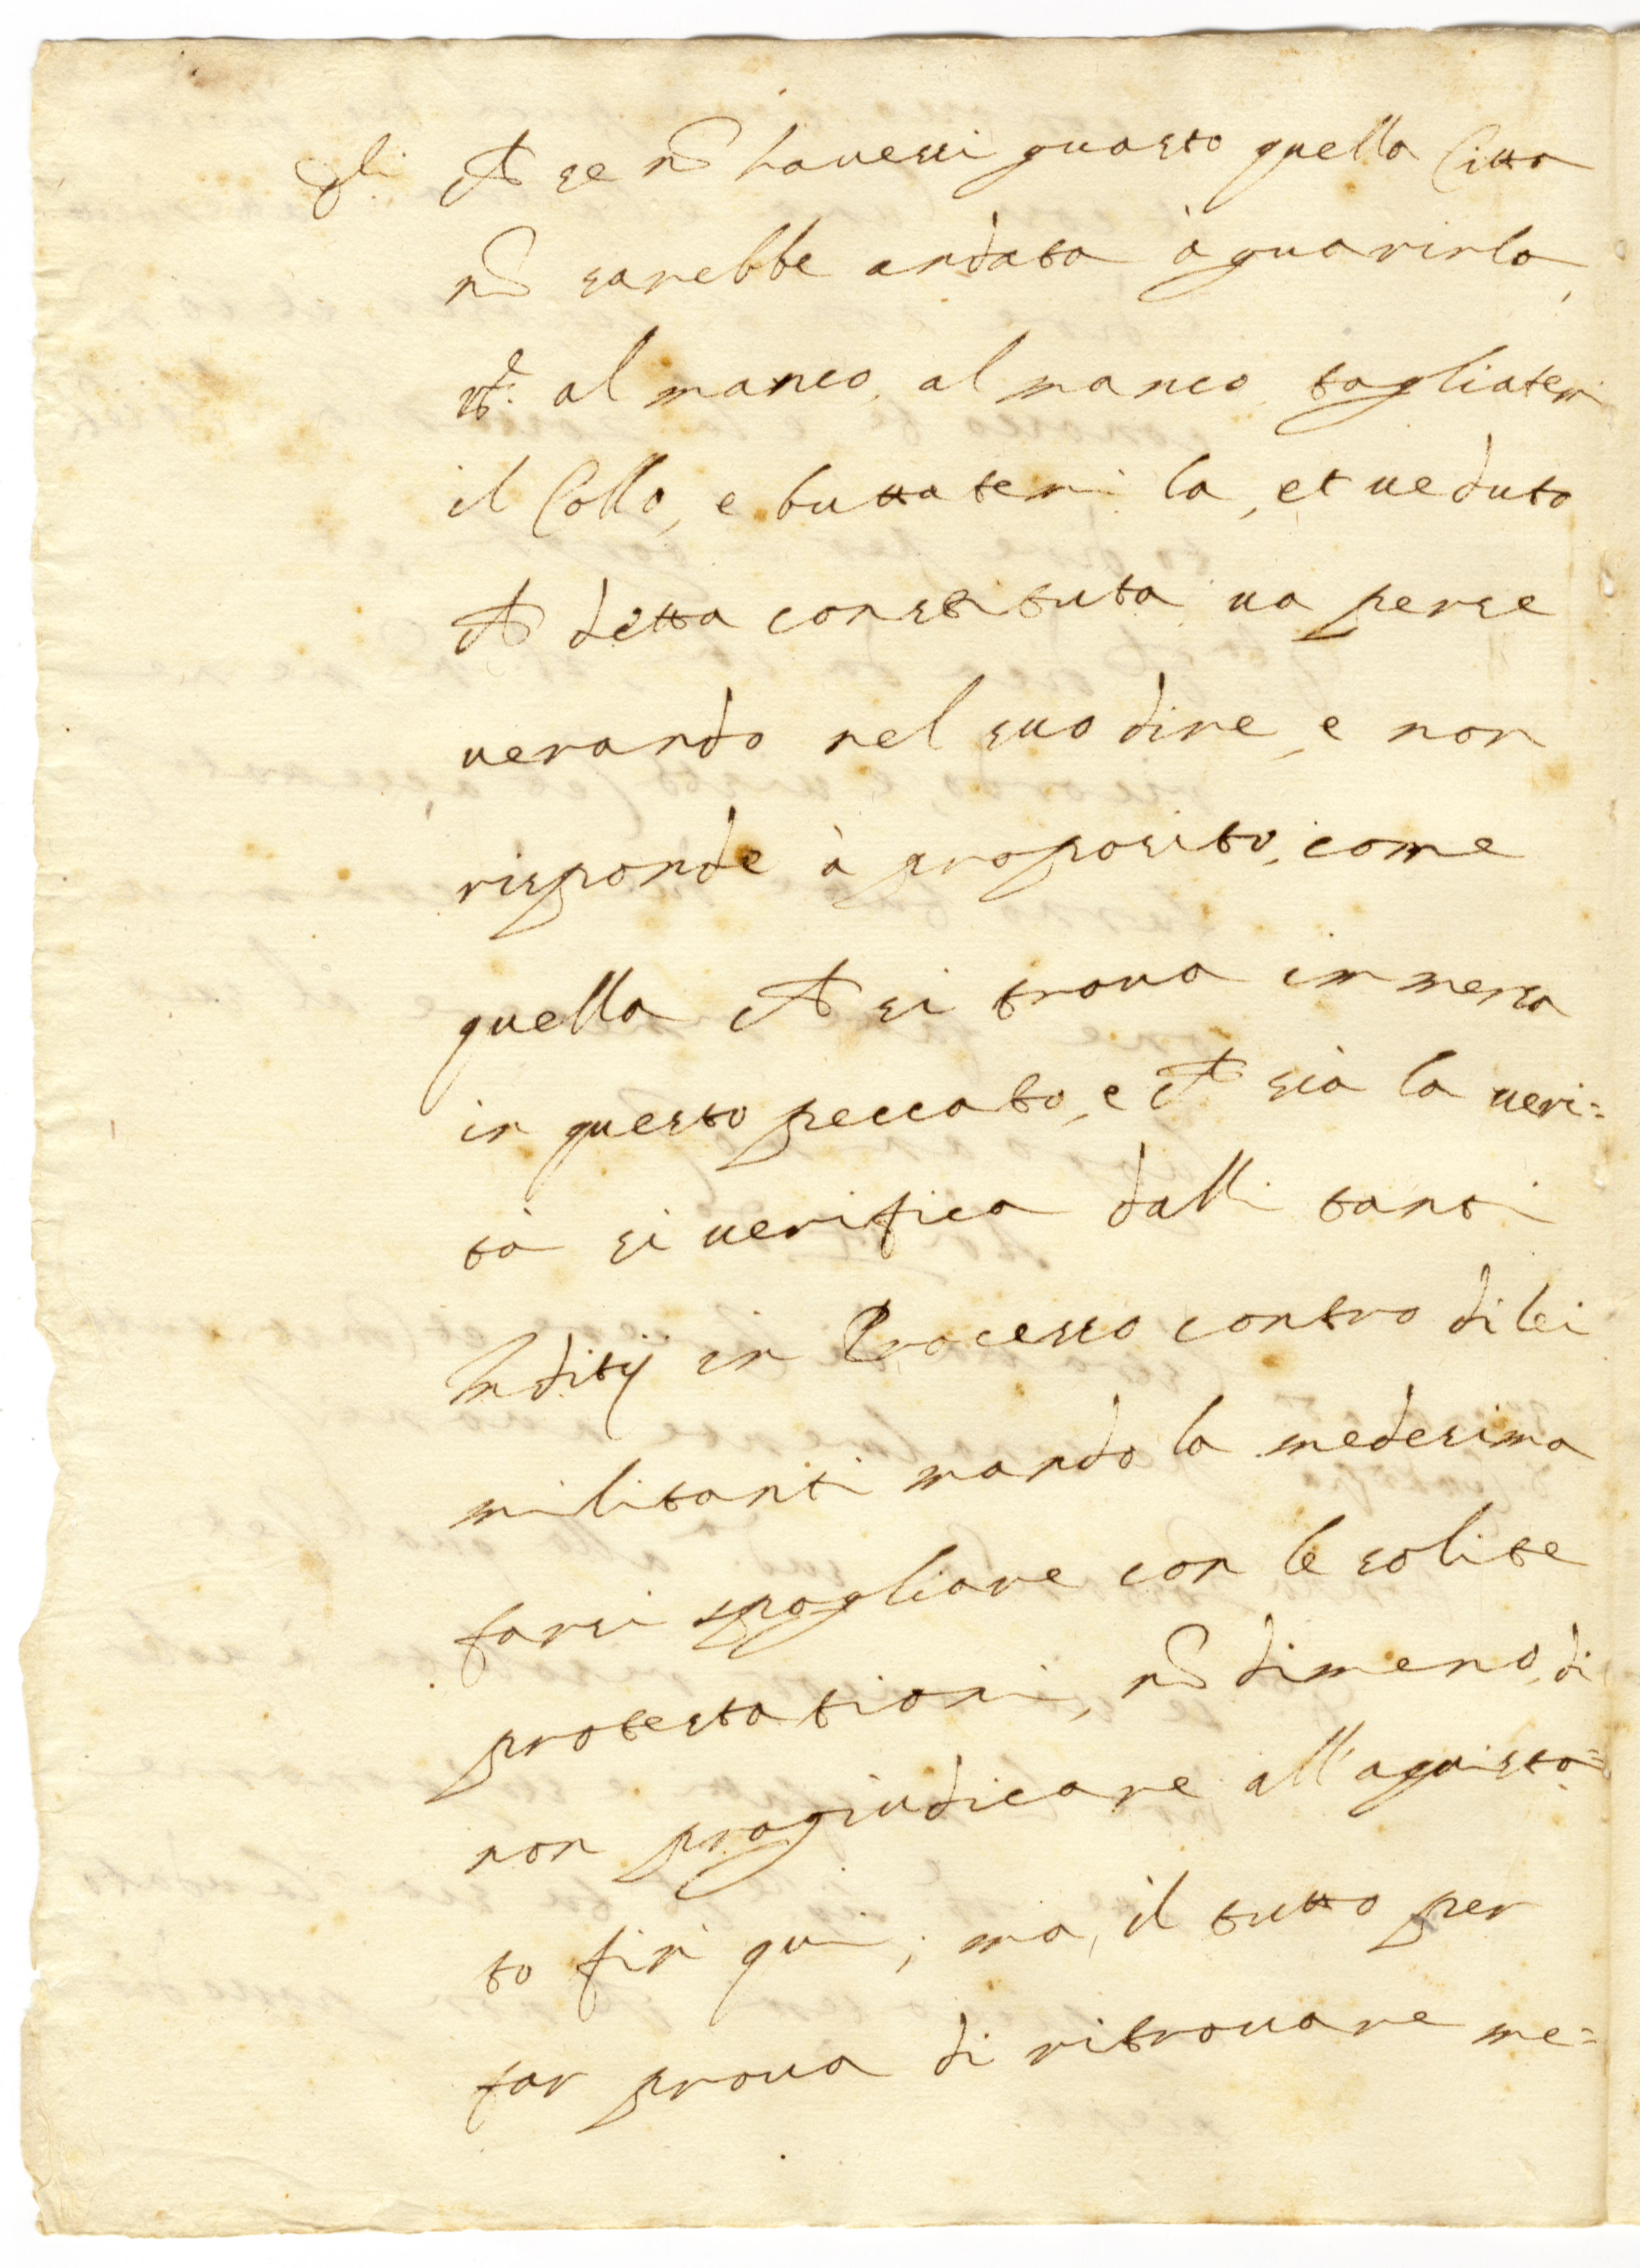 Che se nõ havessi guasto quella Citta
nõ sarebbe andata à guarirla,
al manco, al manco tagliatemi
il Collo, e buttatemi la, et ueduto
che detta constituta ua perse
uerando nel suo dire, e non
risponde à proposito, come
quella che si troua immersa
in questo peccato, e che sià la ueri=
tà si uerifica dalli tanti
Inditij in Processo contro di lei
militanti mandò la medesima
farsi spogliare con le solite
protestationi, nõ dimeno, di
non pregiudicare all'aquista=
to fin qui, ma, il tutto per
far proua di ritrouare me=